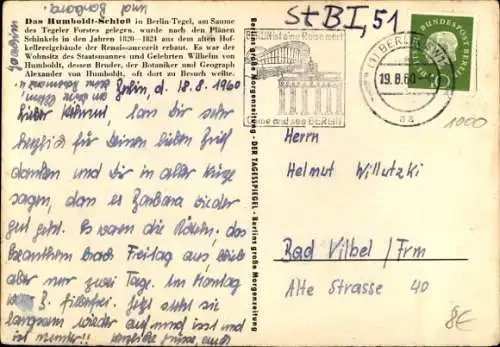 und Barbara
Joachim
Das Humboldt-Schloß in Berlin-Tegel, am Saume
des Tegeler Forstes gelegen, wurde nach den Plänen
Schinkels in den Jahren 1820-1824 aus dem alten Hof-
kellereigebäude der Renaissancezeit erbaut. Es war der
Wohnsitz des Staatsmannes und Gelehrten Wilhelm von
Humboldt, dessen Bruder, der Botaniker und Geograph
Alexander von Humboldt, oft dort zu Besuche weilte.
Berlin, d. 18.8.1960
Lieber Helmut, hab Dir sehr
herzlich für Deinen lieben Brief
danken und Dir in aller Kürze
sagen, daß es Barbara wieder
gut geht. Es waren die Röteln; das
brachten nach Freitag aus,
aber nur zwei Tage. Im Montag
fieberfrei. Jetzt sieht sie
langsam wieder auf und ißt und
ist munter!! herzliche Grüsse, auch
Berlins große Morgenzeitung - DER TAGESSPIEGEL - Berlins große Morgenzeitung
St BI, 51
eine Reise wert
BERLIN
(1) BERLIN
19.8.60
aa
DEUTSCHE BUNDESPOST BERLIN
1000
Herrn
Helmut Willutzki
Bad Vilbel / Frm
Alte Strasse 40
8€